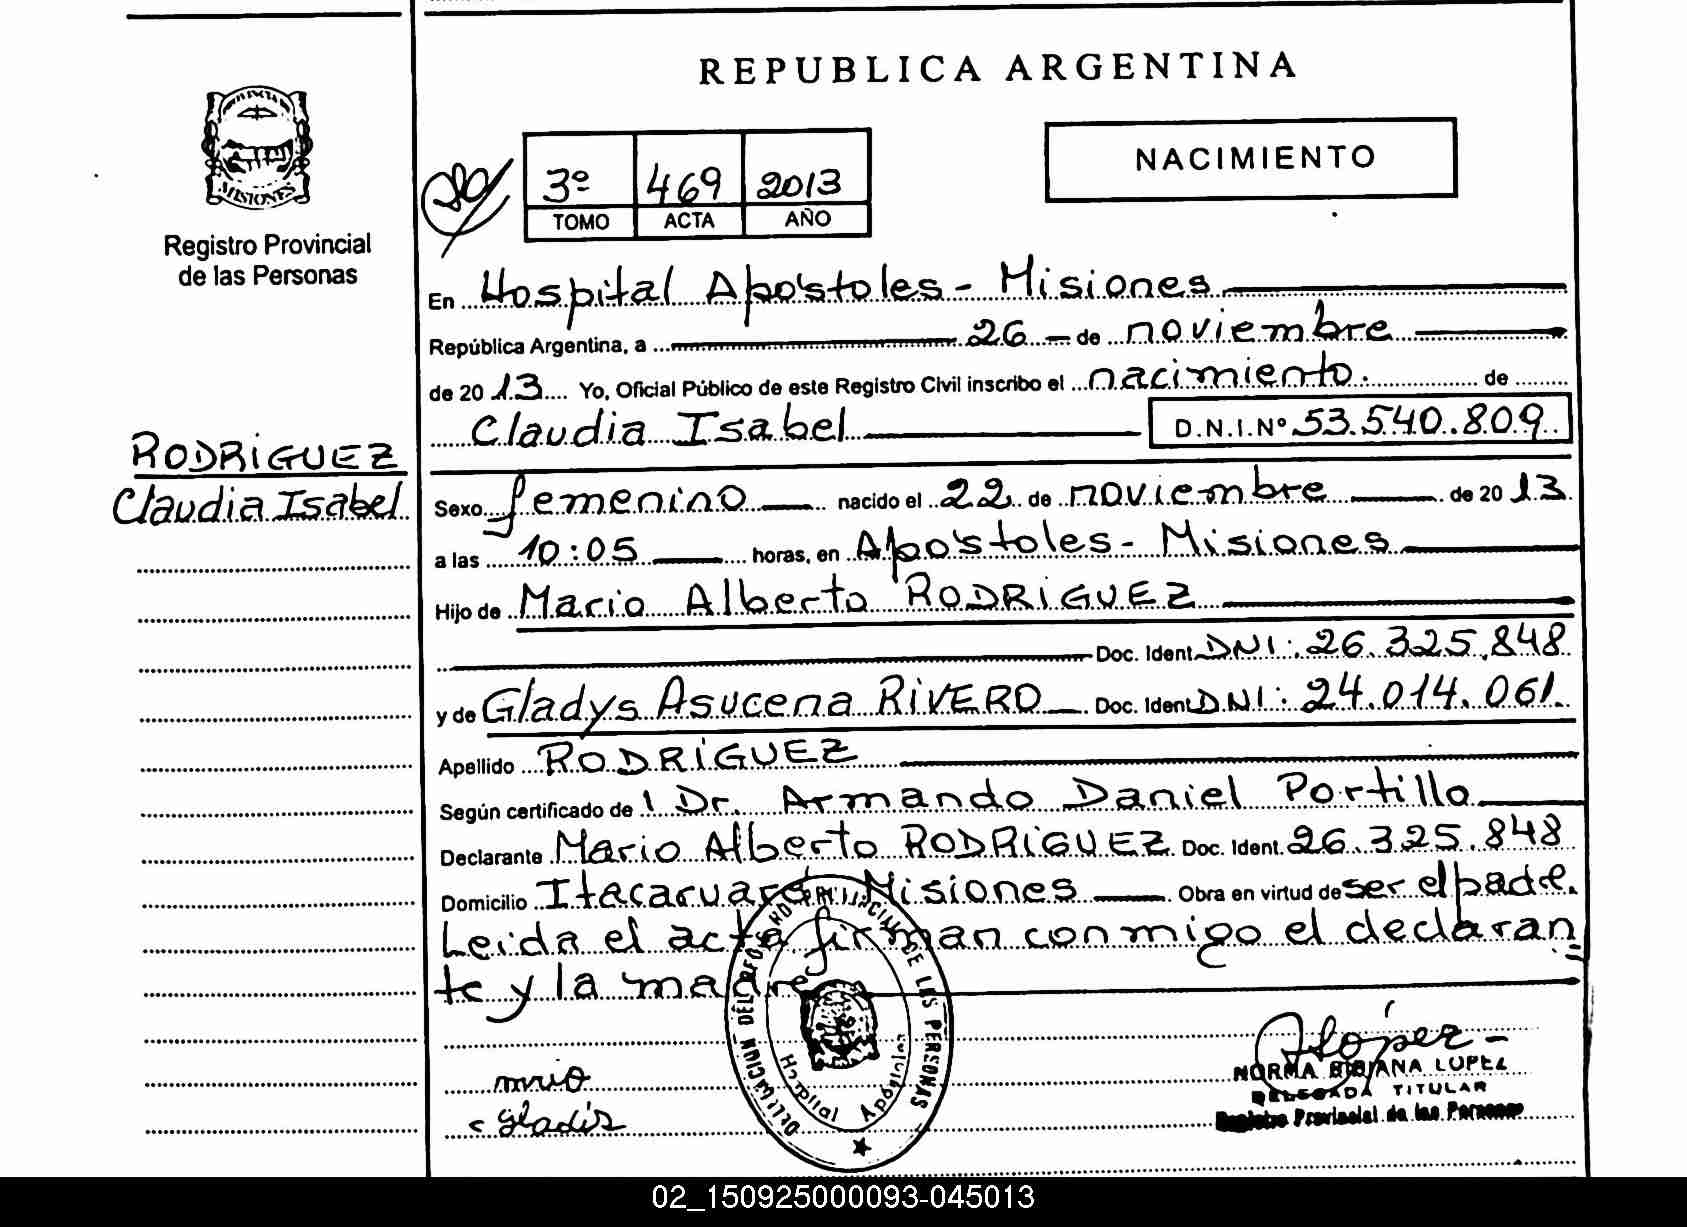 REPUBLICA ARGENTINA
PROVINCIA DE
MISIONES
Registro Provincial
de las Personas
3º 469 2013
TOMO ACTA AÑO
NACIMIENTO
En Hospital Apóstoles - Misiones
República Argentina, a 26 de noviembre
de 2013 Yo, Oficial Público de este Registro Civil inscribo el nacimiento. de
Claudia Isabel D.N.I.Nº 53.540.809
RODRIGUEZ
Claudia Isabel
Sexo femenino nacido el 22 de noviembre de 2013
a las 10:05 horas, en Apóstoles - Misiones
Hijo de Mario Alberto RODRIGUEZ
Doc. Ident DNI: 26.325.848
y de Gladys Asucena RIVERO Doc. Ident DNI: 24.014.061.
Apellido RODRIGUEZ
Según certificado de Dr. Armando Daniel Portillo
Declarante Mario Alberto RODRIGUEZ Doc. Ident. 26.325.848
Domicilio Itacaruaré Misiones Obra en virtud de ser el padre.
Leida el acta firman conmigo el declaran
te y la madre
DELEGACION DEL REGISTRO PROVINCIAL DE LAS PERSONAS
Hospital Apóstoles
mrio
gladis
López
NORMA BIBIANA LOPEZ
DELEGADA TITULAR
Registro Provincial de las Personas
02_150925000093-045013